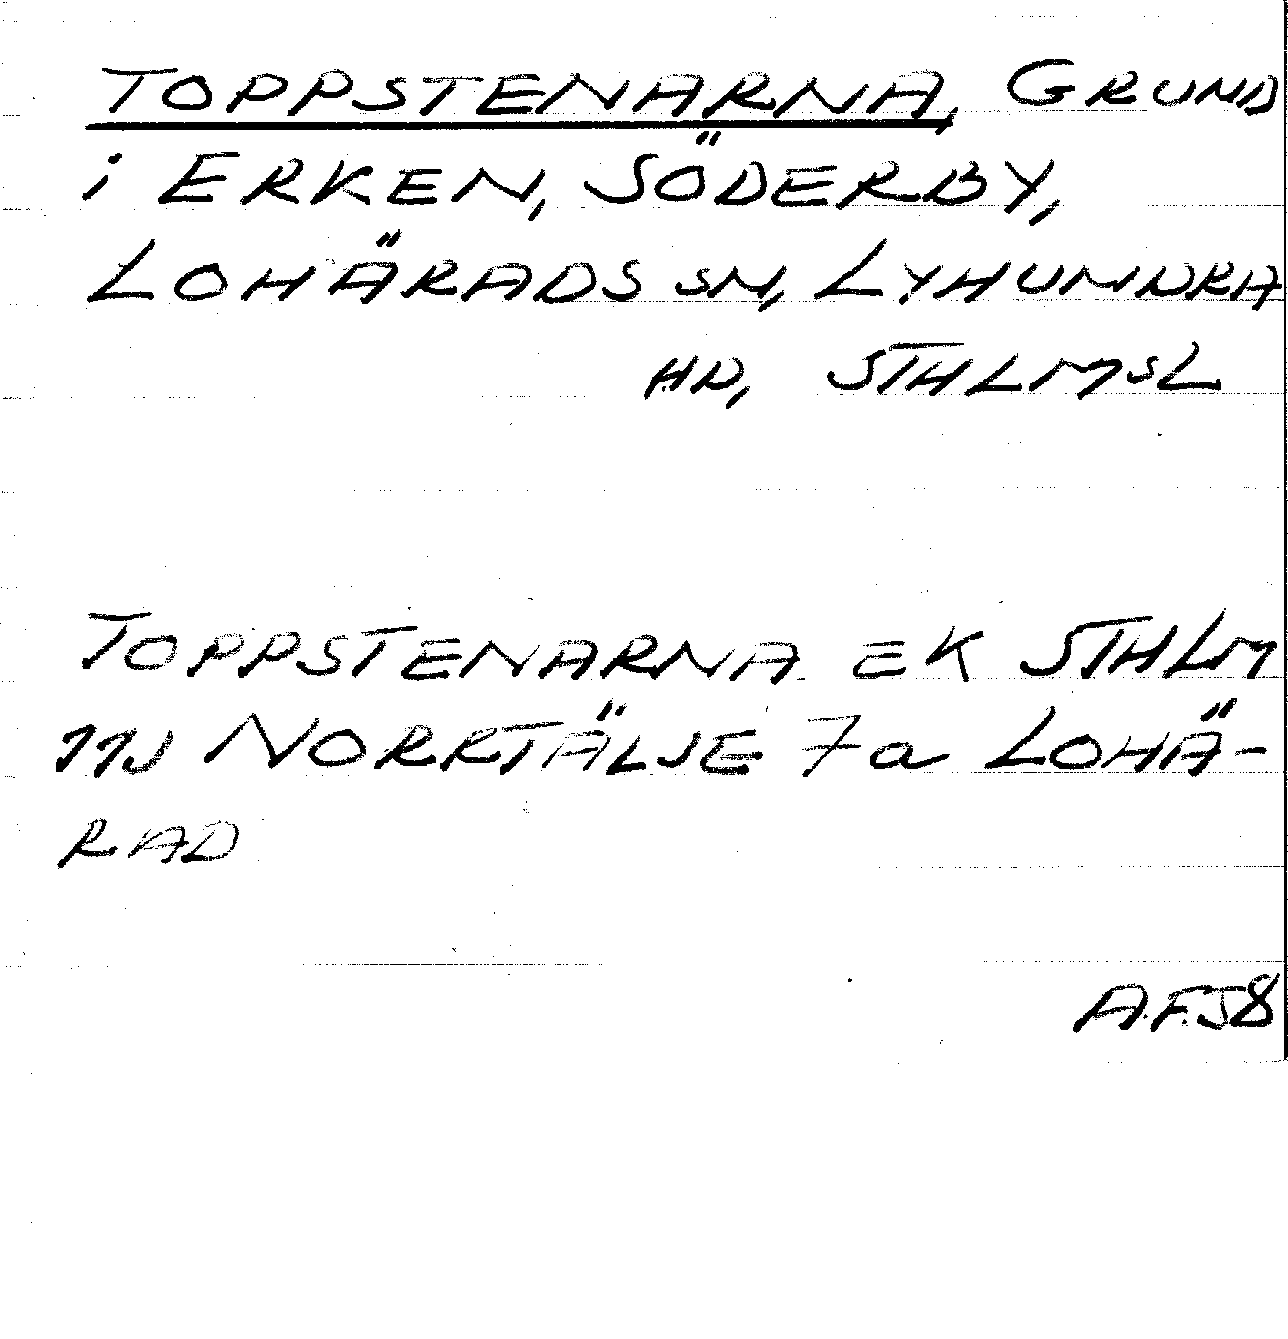 TOPPSTENARNA, GRUND
i ERKEN, SÖDERBY,
LOHÄRADS SN, LYHUNDRA
HD, STHLMSL
TOPPSTENARNA EK STHLM
11J NORRTÄLJE 7a LOHÄ-
RAD
A.F.J8